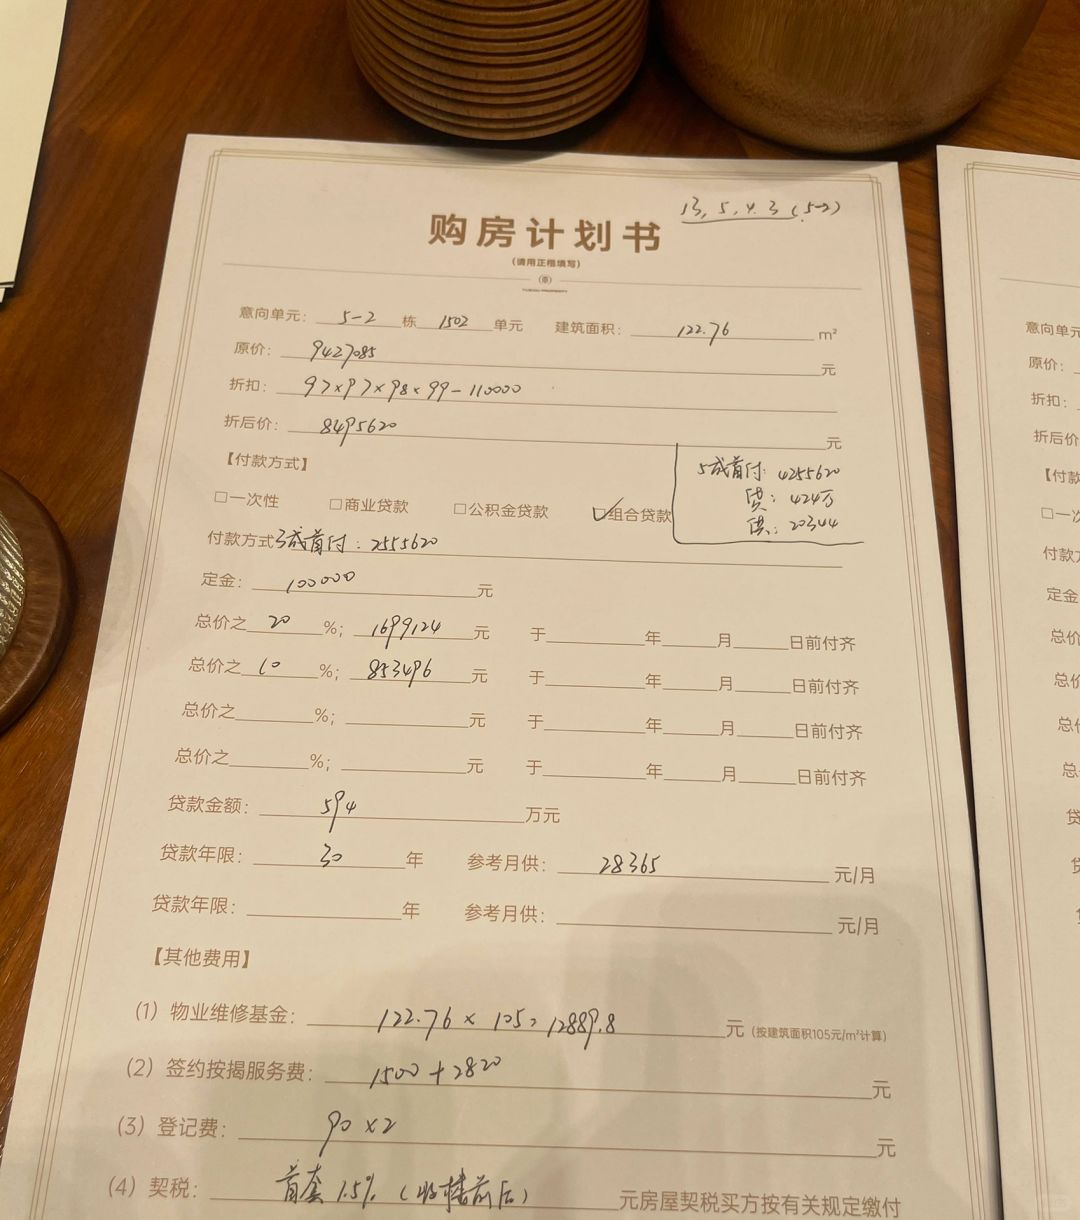 13, 5, 4. 3 (5-2)
购房计划书
(请用正楷填写)
意向单元: 5-2 栋 1502 单元 建筑面积: 122.76 m²
原价: 9427085 元
折扣: 97×97×98×99-110000
折后价: 8495620 元
【付款方式】
5成首付: 4255620
贷: 424万
供: 20344
□一次性 □商业贷款 □公积金贷款 ☑组合贷款
付款方式3成首付: 2555620
定金: 100000 元
总价之 20 %; 1699124 元 于 年 月 日前付齐
总价之 10 %; 853496 元 于 年 月 日前付齐
总价之 %; 元 于 年 月 日前付齐
总价之 %; 元 于 年 月 日前付齐
贷款金额: 594 万元
贷款年限: 30 年 参考月供: 28365 元/月
贷款年限: 年 参考月供: 元/月
【其他费用】
(1) 物业维修基金: 122.76 × 105= 12889.8 元 (按建筑面积105元/m²计算)
(2) 签约按揭服务费: 1500+2820 元
(3) 登记费: 90×2 元
(4) 契税: 首套 1.5% (收楼前后) 元房屋契税买方按有关规定缴付
意向单元
原价:
折扣:
折后价
【付款
□一次
付款方
定金
总价
总价
总价
总
贷
贷